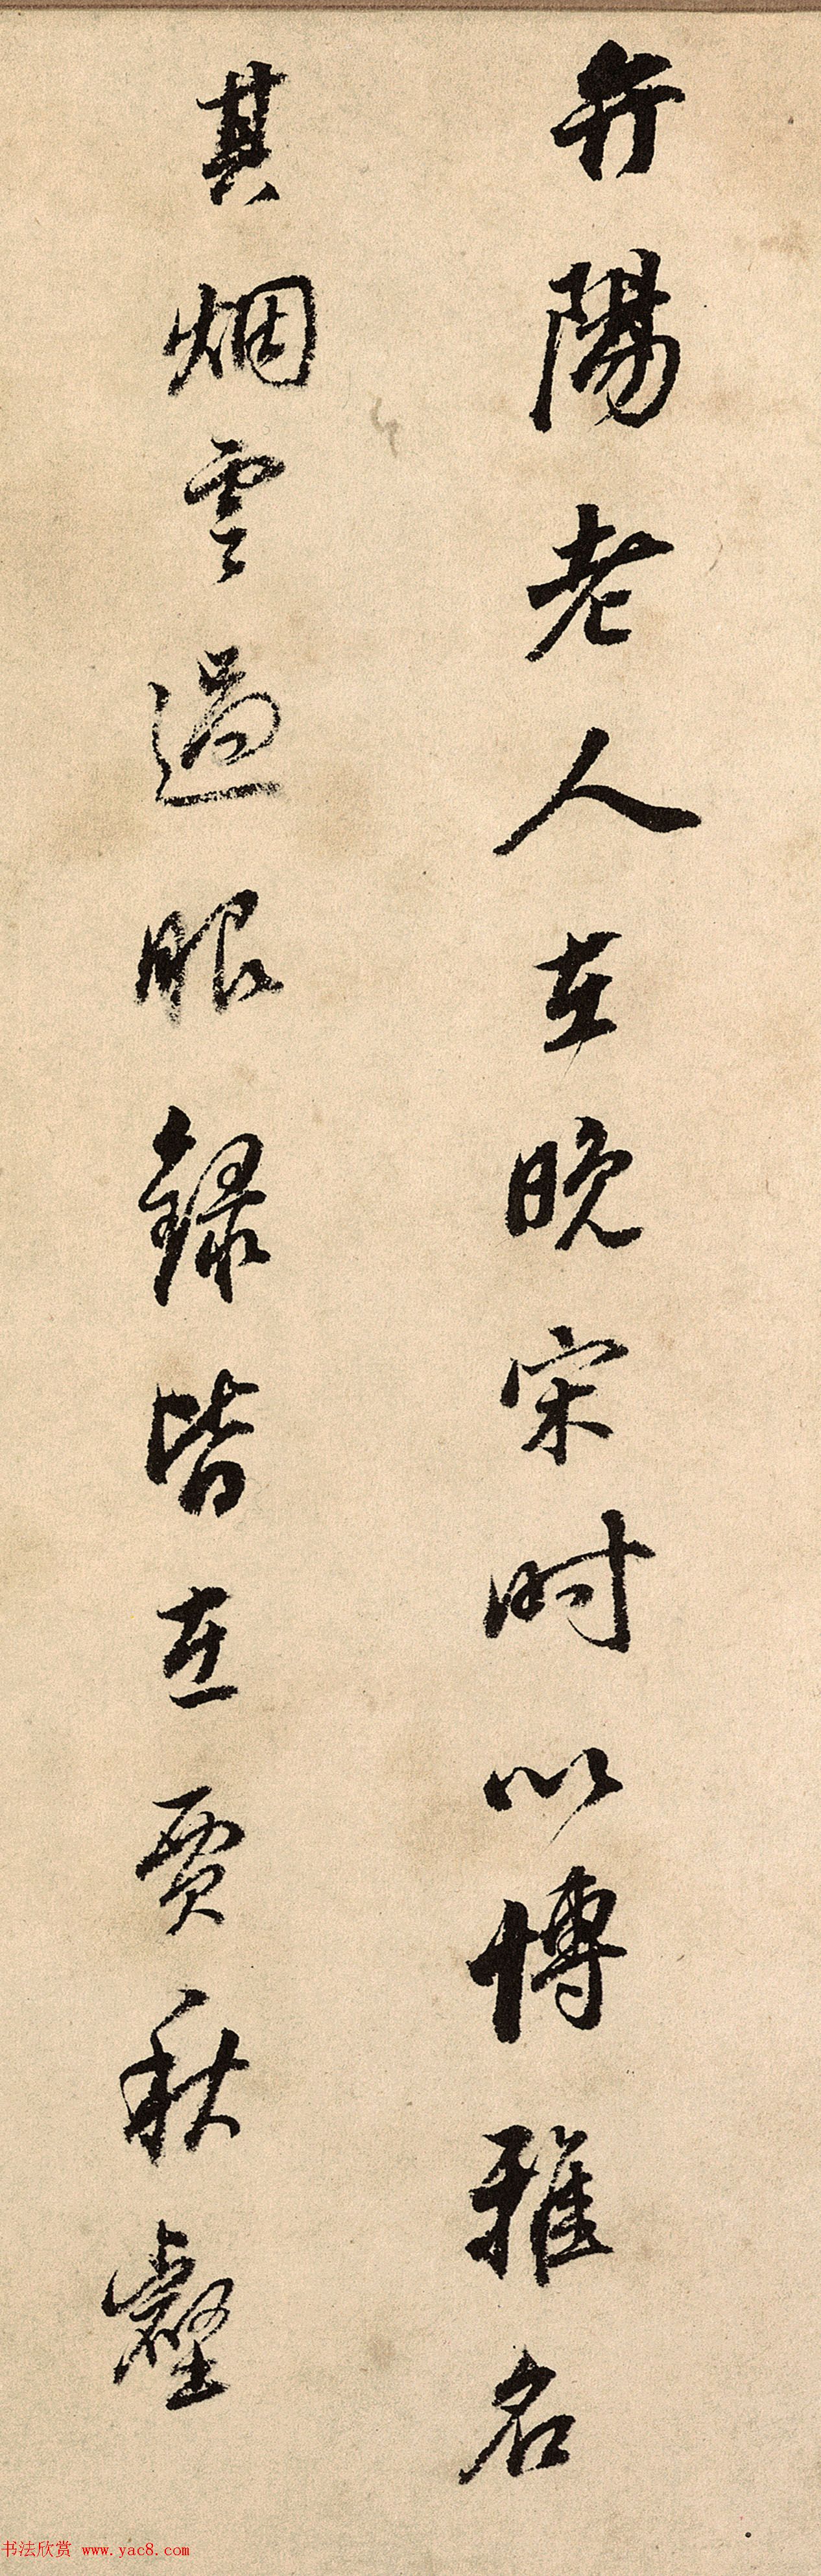 弁陽老人在晚宋時以博雅名
其烟雲過眼録皆在賈秋壑
书法欣赏 www.yac8.com